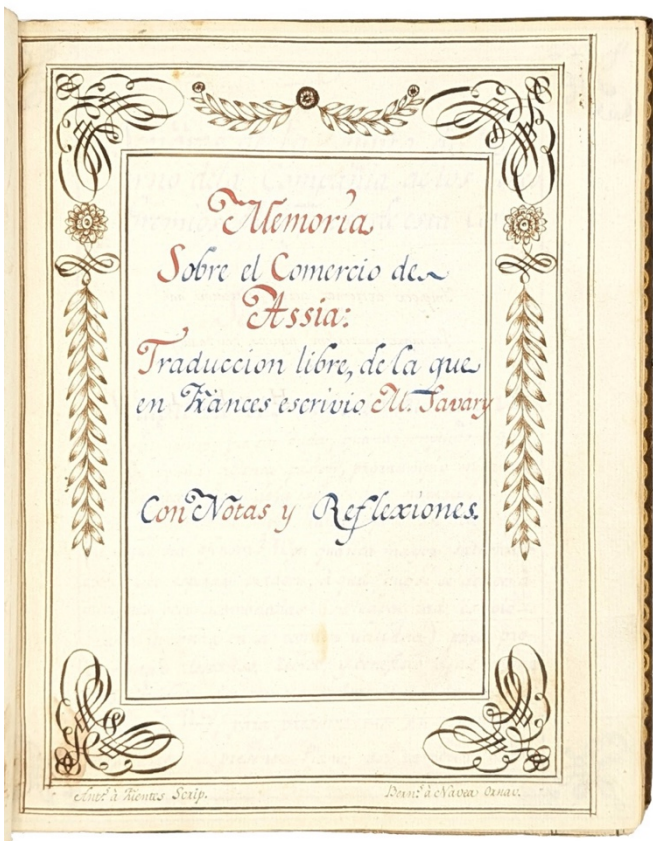 Memoria
Sobre el Comercio de
Assia:
Traduccion libre, de la que
en Frances escrivio M. Savary
Con Notas y Reflexiones.
Ant.º à Scrip.
Bern.º à Navea Ornav.